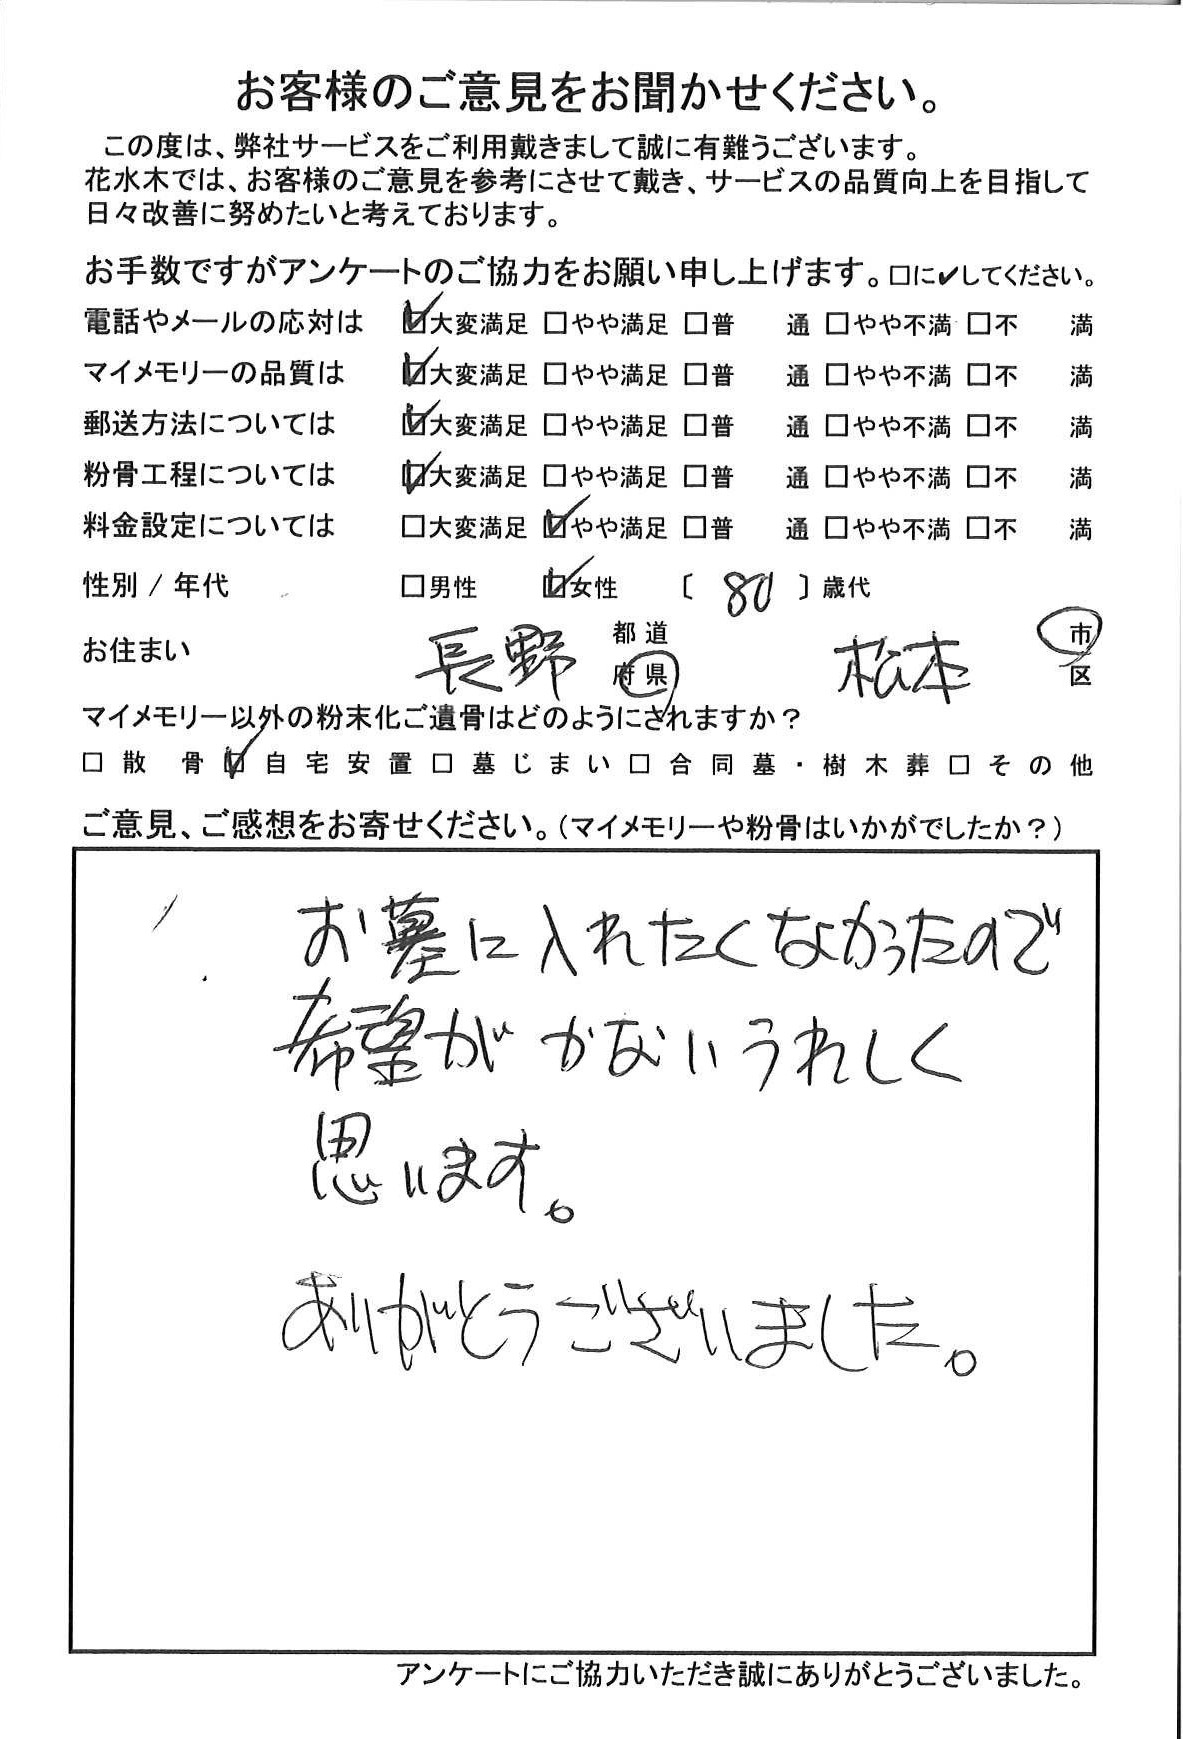 お客様のご意見をお聞かせください。
この度は、弊社サービスをご利用戴きまして誠に有難うございます。
花水木では、お客様のご意見を参考にさせて戴き、サービスの品質向上を目指して
日々改善に努めたいと考えております。
お手数ですがアンケートのご協力をお願い申し上げます。□に✔してください。
電話やメールの応対は ☑大変満足 □やや満足 □普 通 □やや不満 □不 満
マイメモリーの品質は ☑大変満足 □やや満足 □普 通 □やや不満 □不 満
郵送方法については ☑大変満足 □やや満足 □普 通 □やや不満 □不 満
粉骨工程については ☑大変満足 □やや満足 □普 通 □やや不満 □不 満
料金設定については □大変満足 ☑やや満足 □普 通 □やや不満 □不 満
性別 / 年代 □男性 ☑女性 〔 80 〕歳代
お住まい 長野 都道府県 松本 市区
マイメモリー以外の粉末化ご遺骨はどのようにされますか？
□散 骨 ☑自宅安置 □墓じまい □合同墓・樹木葬 □その他
ご意見、ご感想をお寄せください。（マイメモリーや粉骨はいかがでしたか？）
お墓に入れたくなかったので
希望がかないうれしく
思います。
ありがとうございました。
アンケートにご協力いただき誠にありがとうございました。